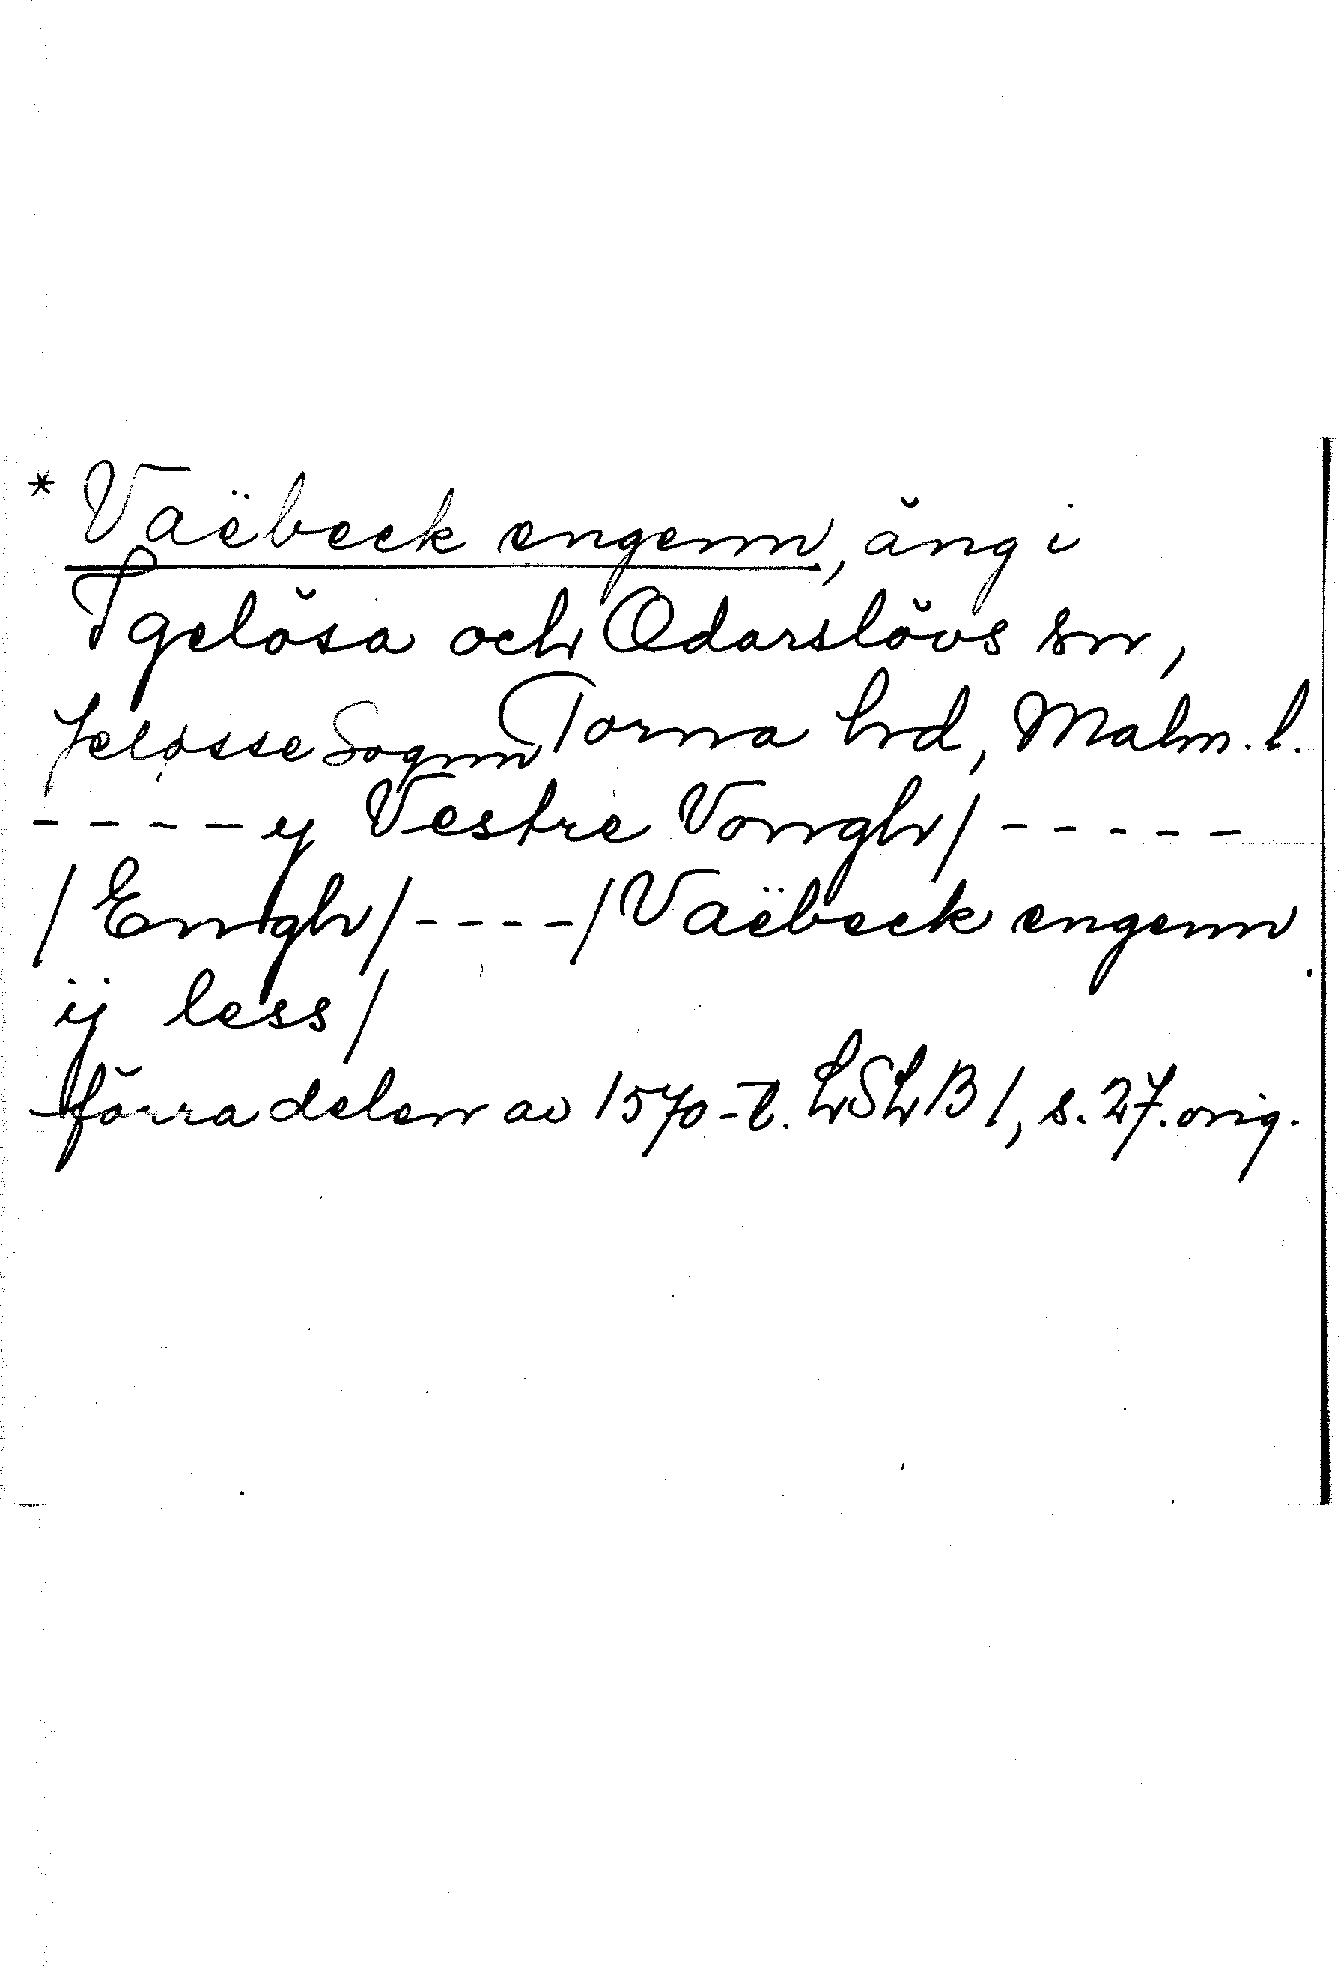 * Vaëbeck engenn, äng i
Igelösa och Odarslövs snr,
Jelosse Sognn Torna hrd, Malm. l.
- - - - - y Vestre Vonngh/ - - - - -
/ Enngh/ - - - - / Vaëbeck engenn
ij less /
förra delen av 1570-t. LSLB 1, s. 27. orig.